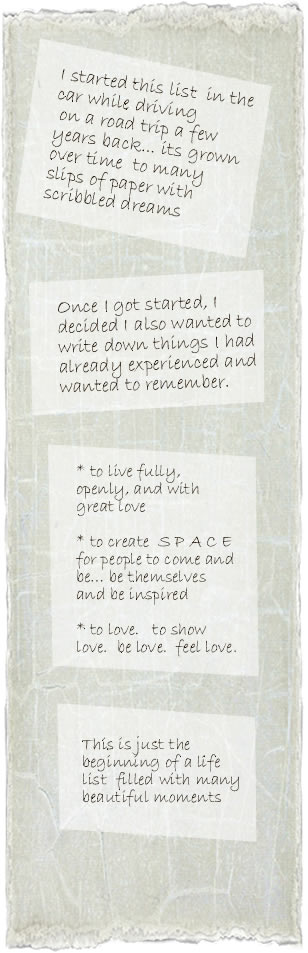 I started this list in the
car while driving
on a road trip a few
years back... its grown
over time to many
slips of paper with
scribbled dreams
Once I got started, I
decided I also wanted to
write down things I had
already experienced and
wanted to remember.
* to live fully,
openly, and with
great love
* to create S P A C E
for people to come and
be... be themselves
and be inspired
* to love. to show
love. be love. feel love.
This is just the
beginning of a life
list filled with many
beautiful moments